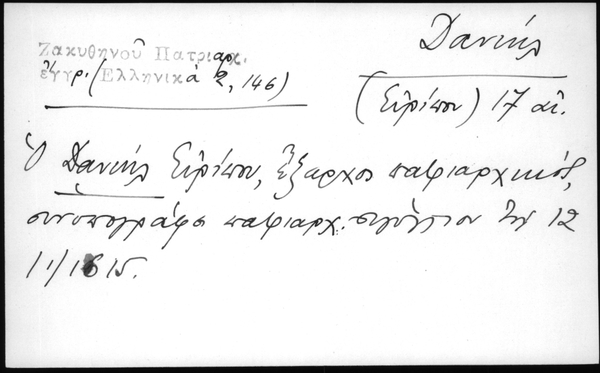 Ζακυθηνοῦ Πατριαρχ.
ἔγγρ. (Ἑλληνικά 2, 146)
Δανιήλ
(Εὐρίπου) 17 αἰ.
Ὁ Δανιήλ Εὐρίπου, ἔξαρχος πατριαρχικός,
συνυπογράφει πατριαρχ. σιγίλλιον τῇ 12
/1/1615.